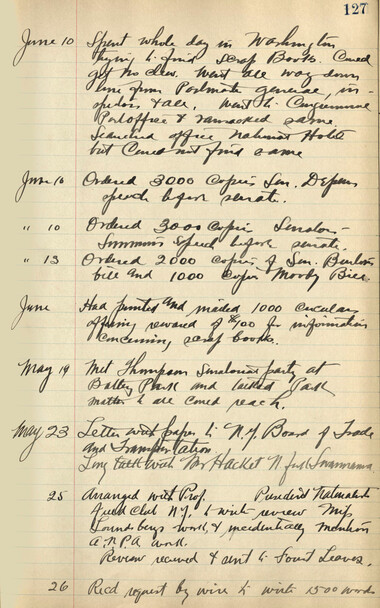 127
June 10 Spent whole day in Washington
trying to find Scrap Books. Could
get no clew. Went all way down
line from Postmaster general, in-
spectors, &all. Went to
Postoffice & ransacked same.
Searched office National Hotel
but Could not find same
June 10 Ordered 3000 Copies Sen. Depew
speech before senate.
" 10 Ordered 3000 Copies Senator
Simmons Speech before senate.
" 13 Ordered 2000 copies of Sen. Burtons
bill and 1000 Copies Moody Bill.
June Had printed and mailed 1000 circulars
offering reward of $100 for information
concerning scrap books.
May 19 Met Thompson party at
Battery Park and talked Park
matter to all could reach.
May 23 Letter with paper to N.Y. Board of Trade
and Transportation
Long talk with Mr Hacket N
25 Arranged with Prof. Naturalist
Field Club N.Y. to write review Miss
Lounsberrys work, & incidentally mention
A.N.P.A. work.
Review received & sent to Forest Leaves.
26 Recd request by wire to write 1500 words